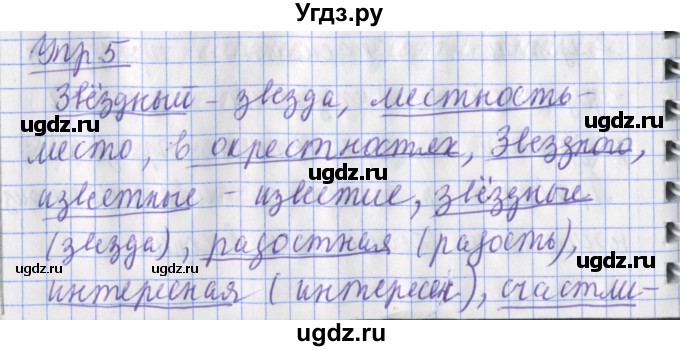 Угдз.ру
Упр 5
Звёздный - звезда, местность-
место, в окрестностях, Звездного,
известные - известие, звёздные
(звезда), радостная (радость),
интересная (интересен), счастли-
ugdz.ru ugdz.ru ugdz.ru
ugdz.ru ugdz.ru
ugdz.ru ugdz.ru
ugdz.ru